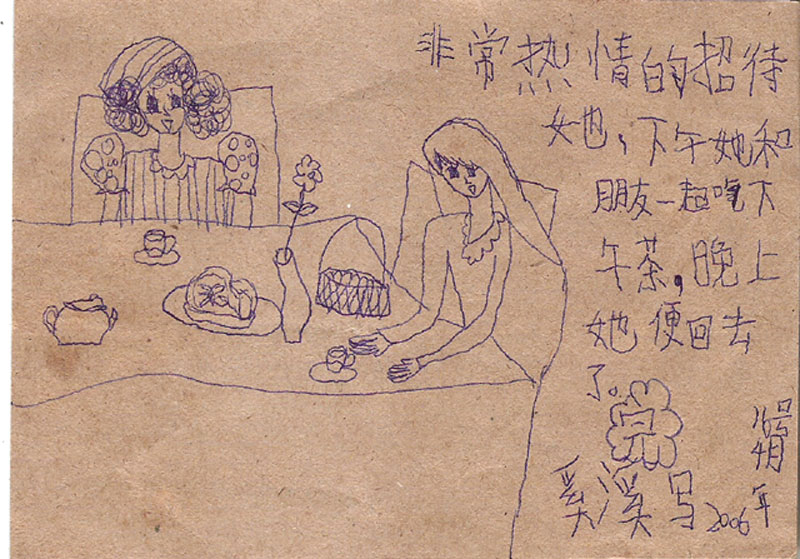 非常热情的招待
她，下午她和
朋友一起吃下
午茶，晚上
她便回去
了。
完
16号
4月
奚溪写2006年